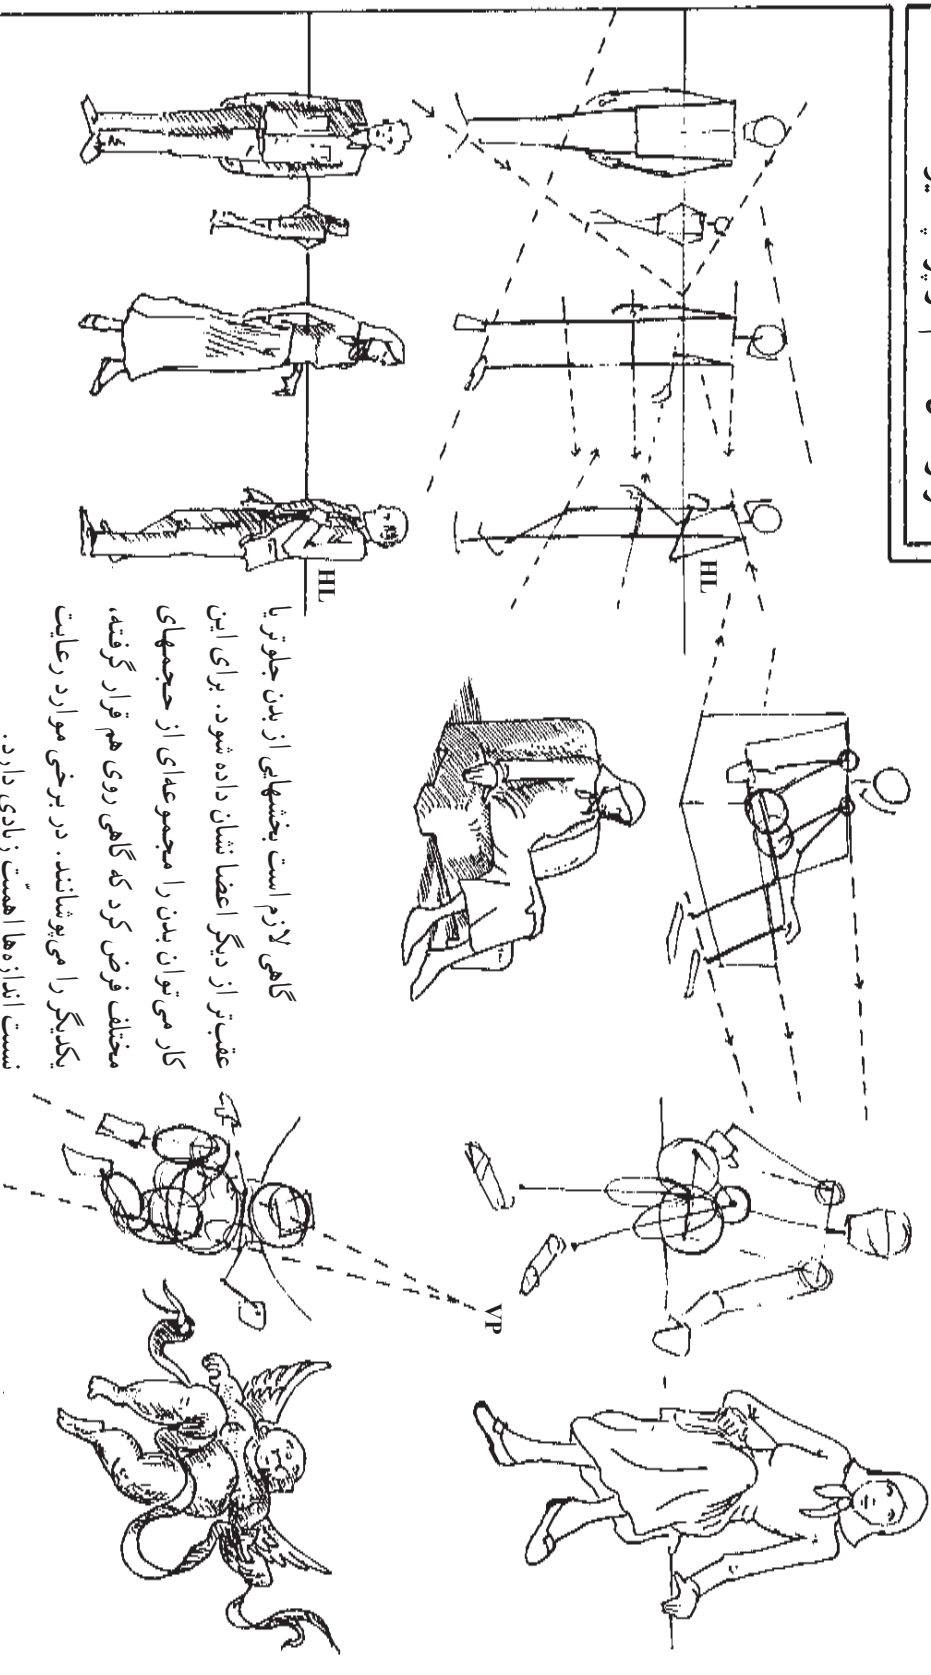 HL
HL
گاهی لازم است بخشهایی از بدن جلوتر یا
عقب‌تر از دیگر اعضا نشان داده شود. برای این
کار می‌توان بدن را مجموعه‌ای از حجمهای
مختلف فرض کرد که گاهی روی هم قرار گرفته،
یکدیگر را می‌پوشانند. در برخی موارد رعایت
نسبت اندازه‌ها اهمّیت زیادی دارد.
VP